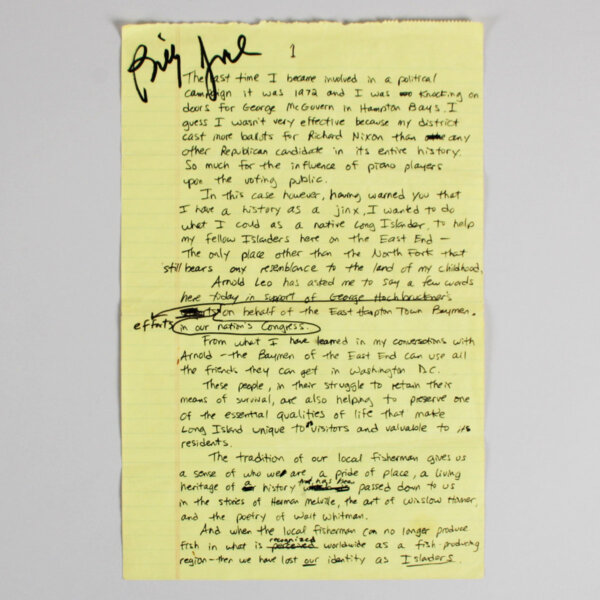 Billy Joel
1
The last time I became involved in a political
campaign it was 1972 and I was knocking on
doors for George McGovern in Hampton Bays. I
guess I wasn't very effective because my district
cast more ballots for Richard Nixon than any
other Republican candidate in its entire history.
So much for the influence of piano players
upon the voting public.
In this case however, having warned you that
I have a history as a jinx, I wanted to do
what I could as a native Long Islander, to help
my fellow Islanders here on the East End —
The only place other than the North Fork that
still bears any resemblance to the land of my childhood.
Arnold Leo has asked me to say a few words
here today in support of George Hochbruckner's
efforts on behalf of the East Hampton Town Baymen.
in our nation's Congress.
From what I have learned in my conversations with
Arnold — the Baymen of the East End can use all
the friends they can get in Washington D.C.
These people, in their struggle to retain their
means of survival, are also helping to preserve one
of the essential qualities of life that make
Long Island unique to visitors and valuable to its
residents.
The tradition of our local fisherman gives us
a sense of who we are, a pride of place, a living
heritage of history that has been passed down to us
in the stories of Herman Melville, the art of Winslow Homer,
and the poetry of Walt Whitman.
And when the local fisherman can no longer produce
fish in what is recognized worldwide as a fish-producing
region — then we have lost our identity as Islanders.